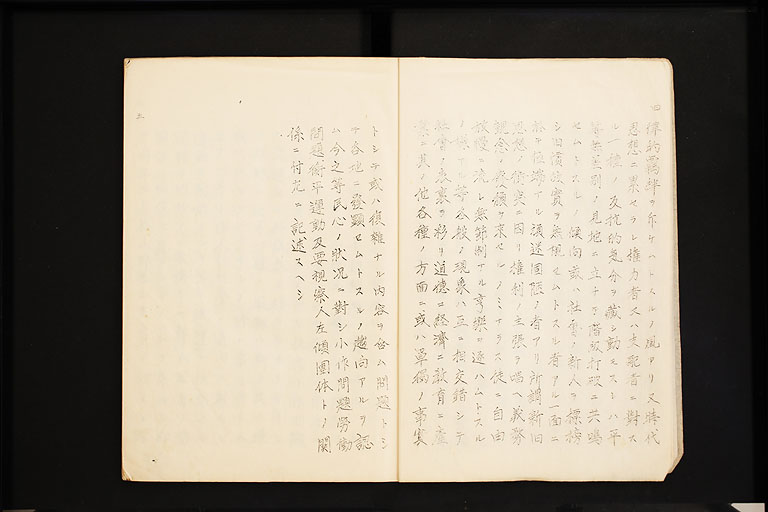 律的羈絆ヲ斥ケムトスルノ風アリ又時代
思想ニ累セラレ権力者又ハ支配者ニ對ス
ル一種ノ反抗的気分ヲ蔵シ動モスレハ平
等無差別ノ見地ニ立チテ階級打破ニ共鳴
セムトスルノ傾向或ハ社會ノ新人ヲ標榜
シ旧慣故實ヲ無視セムトスル者アル一面ニ
於テ極端ナル頑迷固陋ノ者アリ所謂新旧
思想ノ衝突ニ因リ権利ノ主張ヲ唱ヘ義務
観念ノ廃頽ヲ来セルノミナラス徒ニ自由
放慢ニ流レ無節制ナル享楽ヲ逐ハムトスル
ノ様アル等各般ノ現象ハ互ニ相交錯シテ
社會ノ表裏ヲ彩リ道徳ニ経済ニ教育ニ産
業ニ其ノ他各種ノ方面ニ或ハ單獨ノ事実
トシテ或ハ複雑ナル内容ヲ含ム問題トシ
テ各地ニ發顕セムトスルノ趨向アルヲ認
ム今之等民心ノ状況ニ對シ小作問題労働
問題衡平運動及要視察人左傾團体トノ関
係ニ付尤ニ記述スヘシ